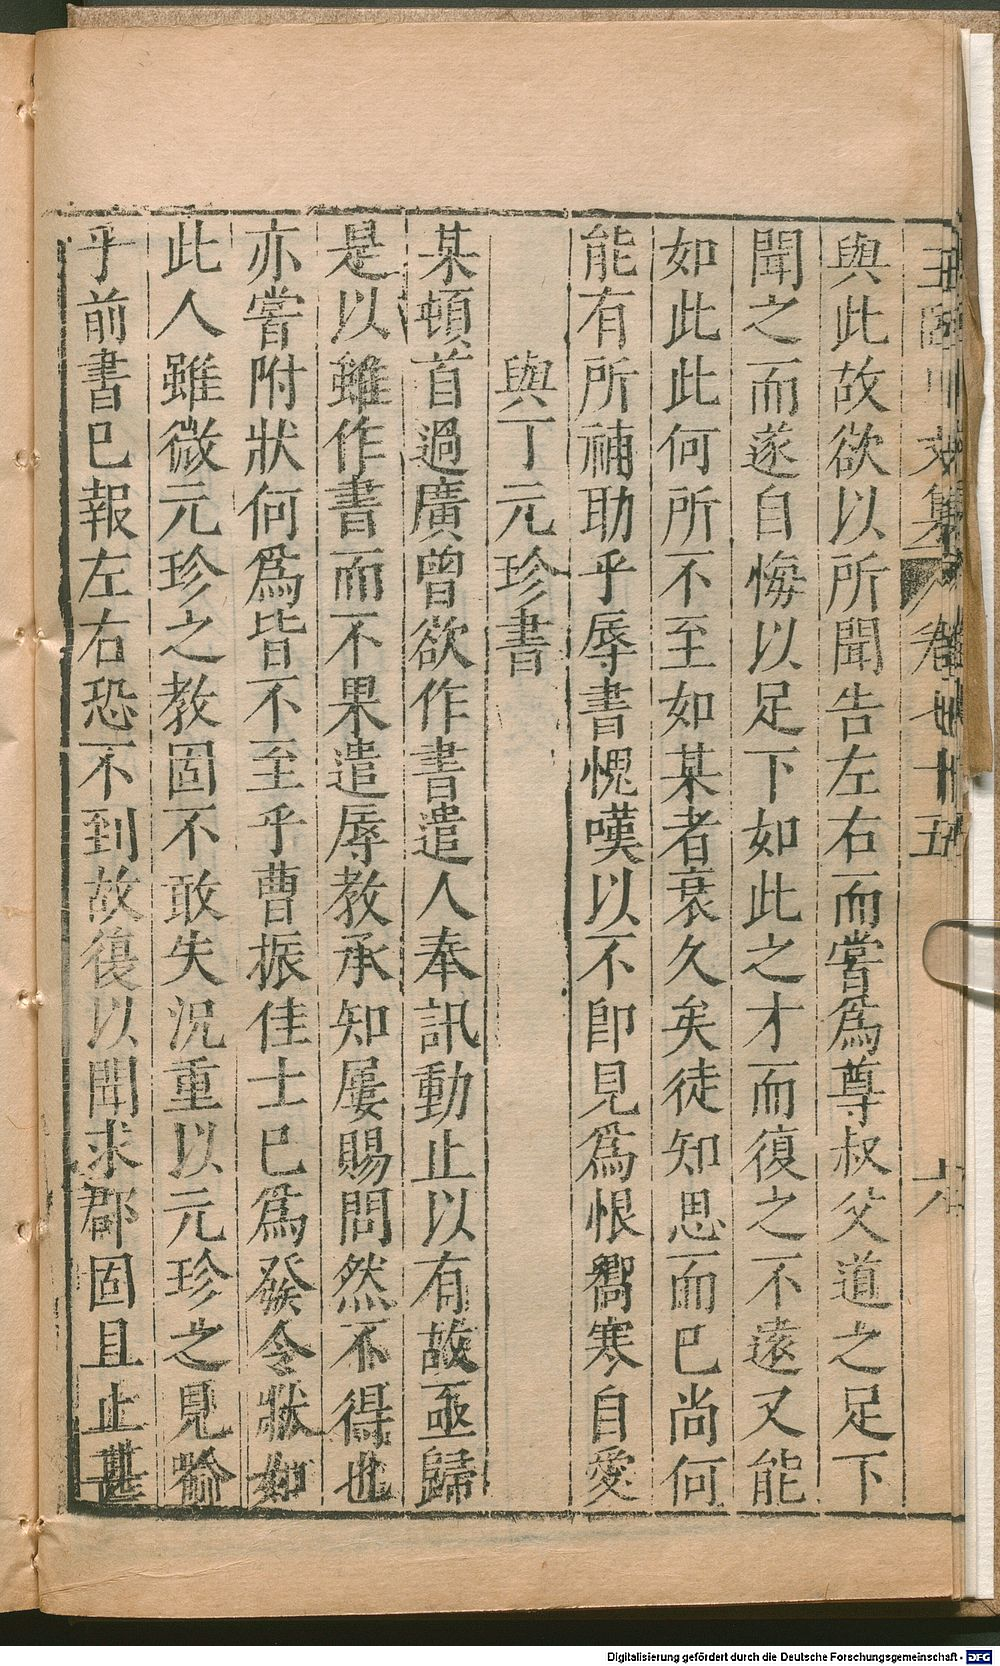 王臨川文集 卷七十五 六
與此故欲以所聞告左右而嘗爲尊叔父道之足下
聞之而遂自悔以足下如此之才而復之不遠又能
如此此何所不至如某者衰久矣徒知思而已尚何
能有所補助乎辱書愧嘆以不卽見爲恨嚮寒自愛
與丁元珍書
某頓首過廣曾欲作書遣人奉訊動止以有故亟歸
是以雖作書而不果遣辱教承知屢賜問然不得也
亦嘗附狀何爲皆不至乎曹振佳士已爲發令狀如
此人雖微元珍之教固不敢失況重以元珍之見諭
乎前書已報左右恐不到故復以聞求郡固且止甚
Digitalisierung gefördert durch die Deutsche Forschungsgemeinschaft - DFG